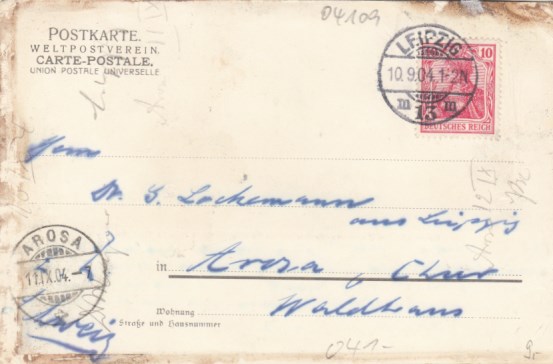 POSTKARTE.
WELTPOSTVEREIN.
CARTE-POSTALE.
UNION POSTALE UNIVERSELLE
04109
LEIPZIG
10.9.04.1-2N.
m 13 m
10
DEUTSCHES REICH
Herrn
Dr. G. Lockemann
aus Leipzig
AROSA
11.IX.04.-7
in Arosa, Chur
Waldhaus
Wohnung
Straße und Hausnummer
Schweiz
041-